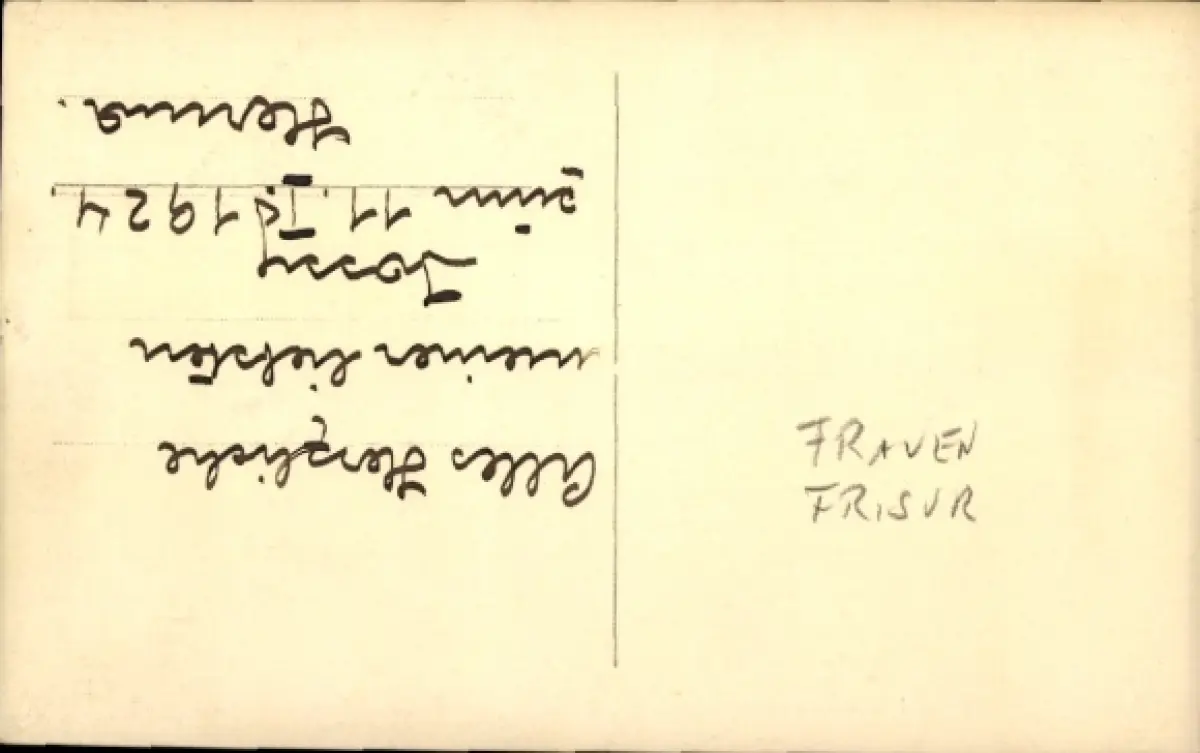 Alles Herzliche
meiner liebsten
Jossy
zum 11. I. 1924
Herma.
FRAUEN
FRISUR